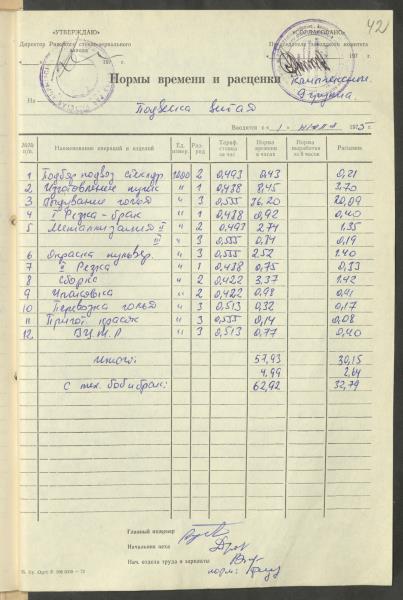 42
«УТВЕРЖДАЮ»
«СОГЛАСОВАНО»
Директор Рижского стеклозеркального завода
Председатель заводского комитета
197 г.
197 г.
Нормы времени и расценки
На Подвеска витая
Вводятся с « 1 » июля 1975 г.
№№ п/п. Наименование операций и изделий Ед. измер. Разряд Тариф. ставка за час Норма времени в часах Норма выработки за 8 часов Расценка
1 1000 2 0,493 0,43 0,21
2 Изготовление пулек " 1 0,438 8,45 3.70
3 " 3 0,555 36.20 20,09
4 I Резка - брак " 1 0,438 0,92 0,40
5 Металлизация II " 2 0,493 2.71 1.35
III " 3 0.555 0.19
6 Окраска пульвер. " 3 0,555 2.52 1.40
7 II Резка " 1 0.438 0.75 0,33
8 Сборка " 2 0.422 3.37 1.42
9 Упаковка " 2 0,422 0.98 0,41
10 Перевозка " 3 0.513 0,32 0.17
11 Пригот. красок " 3 0.555 0,14 0,08
12 " 3 0.513 0.77 0,40
Итого: 57,93 30,15
4.99 2,64
С тех. боб и брак: 62,92 32,79
Главный инженер
Начальник цеха
Нач. отдела труда и зарплаты
норм: